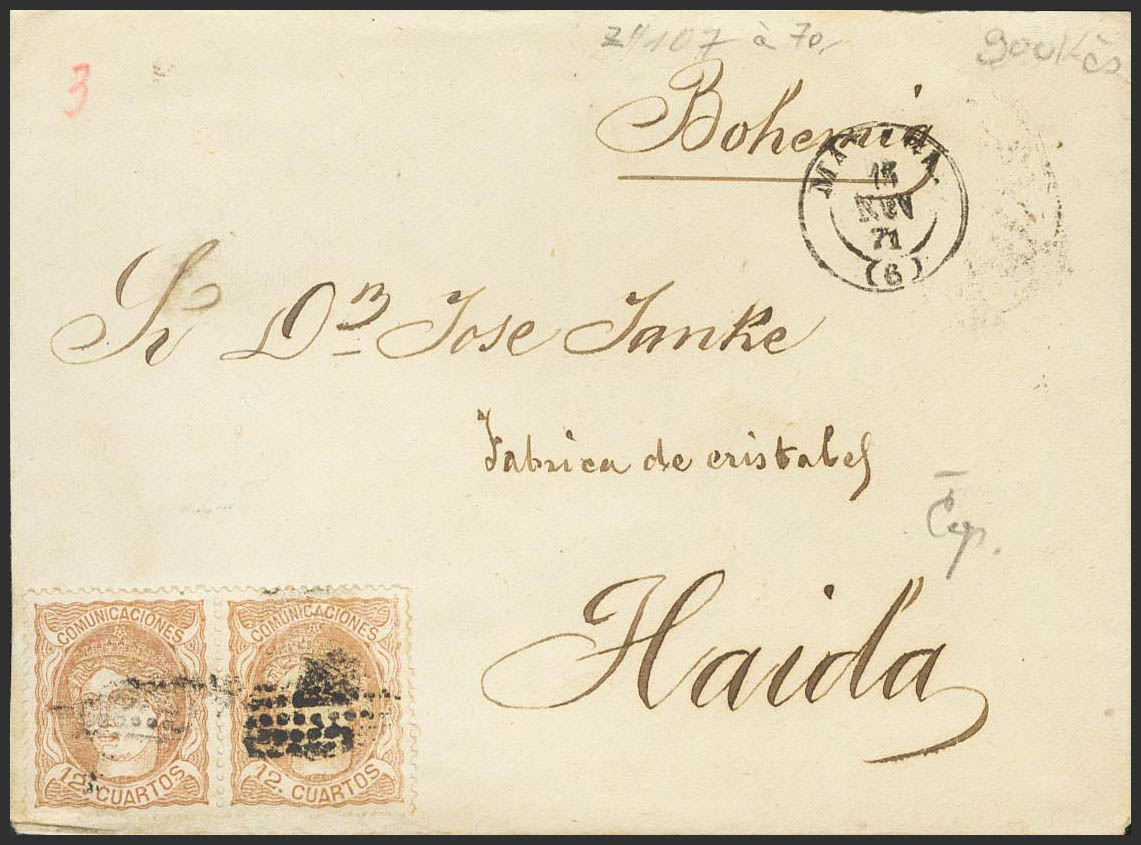 3
107 à 70,
Bohemia
15
NOV
71
(6)
Sr Dn Jose Janke
Fabrica de cristales
Haida
COMUNICACIONES COMUNICACIONES
12. CUARTOS 12. CUARTOS